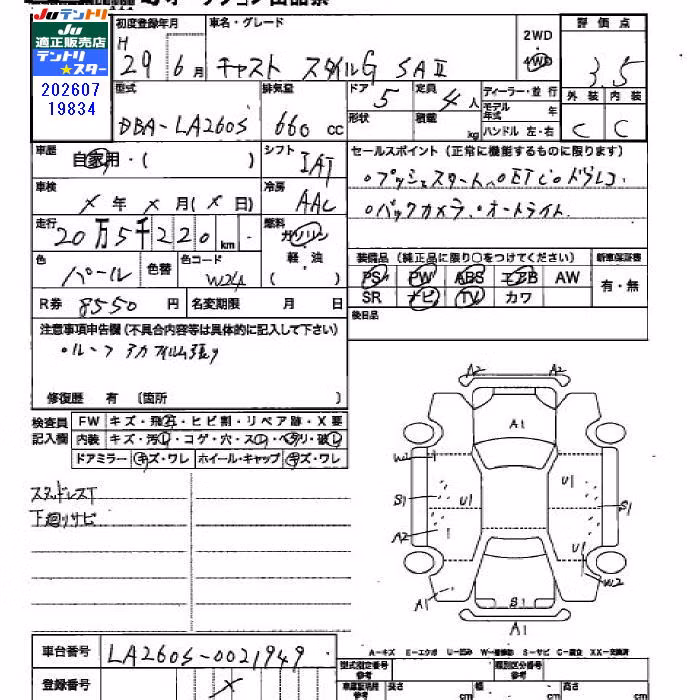 Juテントリ
適正販売店
テントリ
★スター
202607
19834
初度登録年月
H 29 6月
車名・グレード
キャスト スタイルG SAⅡ
2WD
4WD
評価点
3.5
型式
DBA-LA260S
排気量
660 cc
ドア 5
定員 4人
形状
積載 kg
ディーラー・並行
モデル年式 年
ハンドル 左・右
外装 内装
C C
車歴
自家用・( )
シフト
IAT
車検
× 年 × 月(× 日)
冷房
AAC
セールスポイント(正常に機能するものに限ります)
・プッシュスタート・ETC・ドラレコ
・バックカメラ・オートライト
走行
20万5千220km
燃料
ガソリン
軽・油
( )
色
パール
色替
色コード
W24
装備品(純正品に限り○をつけてください)
新車保証書
PS PW ABS エアB AW
有・無
SR ナビ TV カワ
R券 8550 円
名変期限 月 日
後日品
注意事項申告欄(不具合内容等は具体的に記入して下さい)
・ルーフ デカフィルム張り
修復歴 有 〔箇所 〕
検査員
記入欄
FW キズ・飛石・ヒビ割・リペア跡・X要
内装 キズ・汚れ・コゲ・穴・スレ・ヘタリ・破れ
ドアミラー キズ・ワレ ホイール・キャップ キズ・ワレ
スタッドレスT
下廻りサビ
A2 A2
A1
W2
S1 U1 U1 S1
A2
U1
W2
A1
S1
A1
A-キズ E-エクボ U-凹み W-補修跡 S-サビ C-腐食 XX-交換済
車台番号
LA260S-0021949
登録番号
×
型式指定番号
参考
類別区分番号
参考
車庫証明用
参考
長さ cm
幅 cm
高さ cm